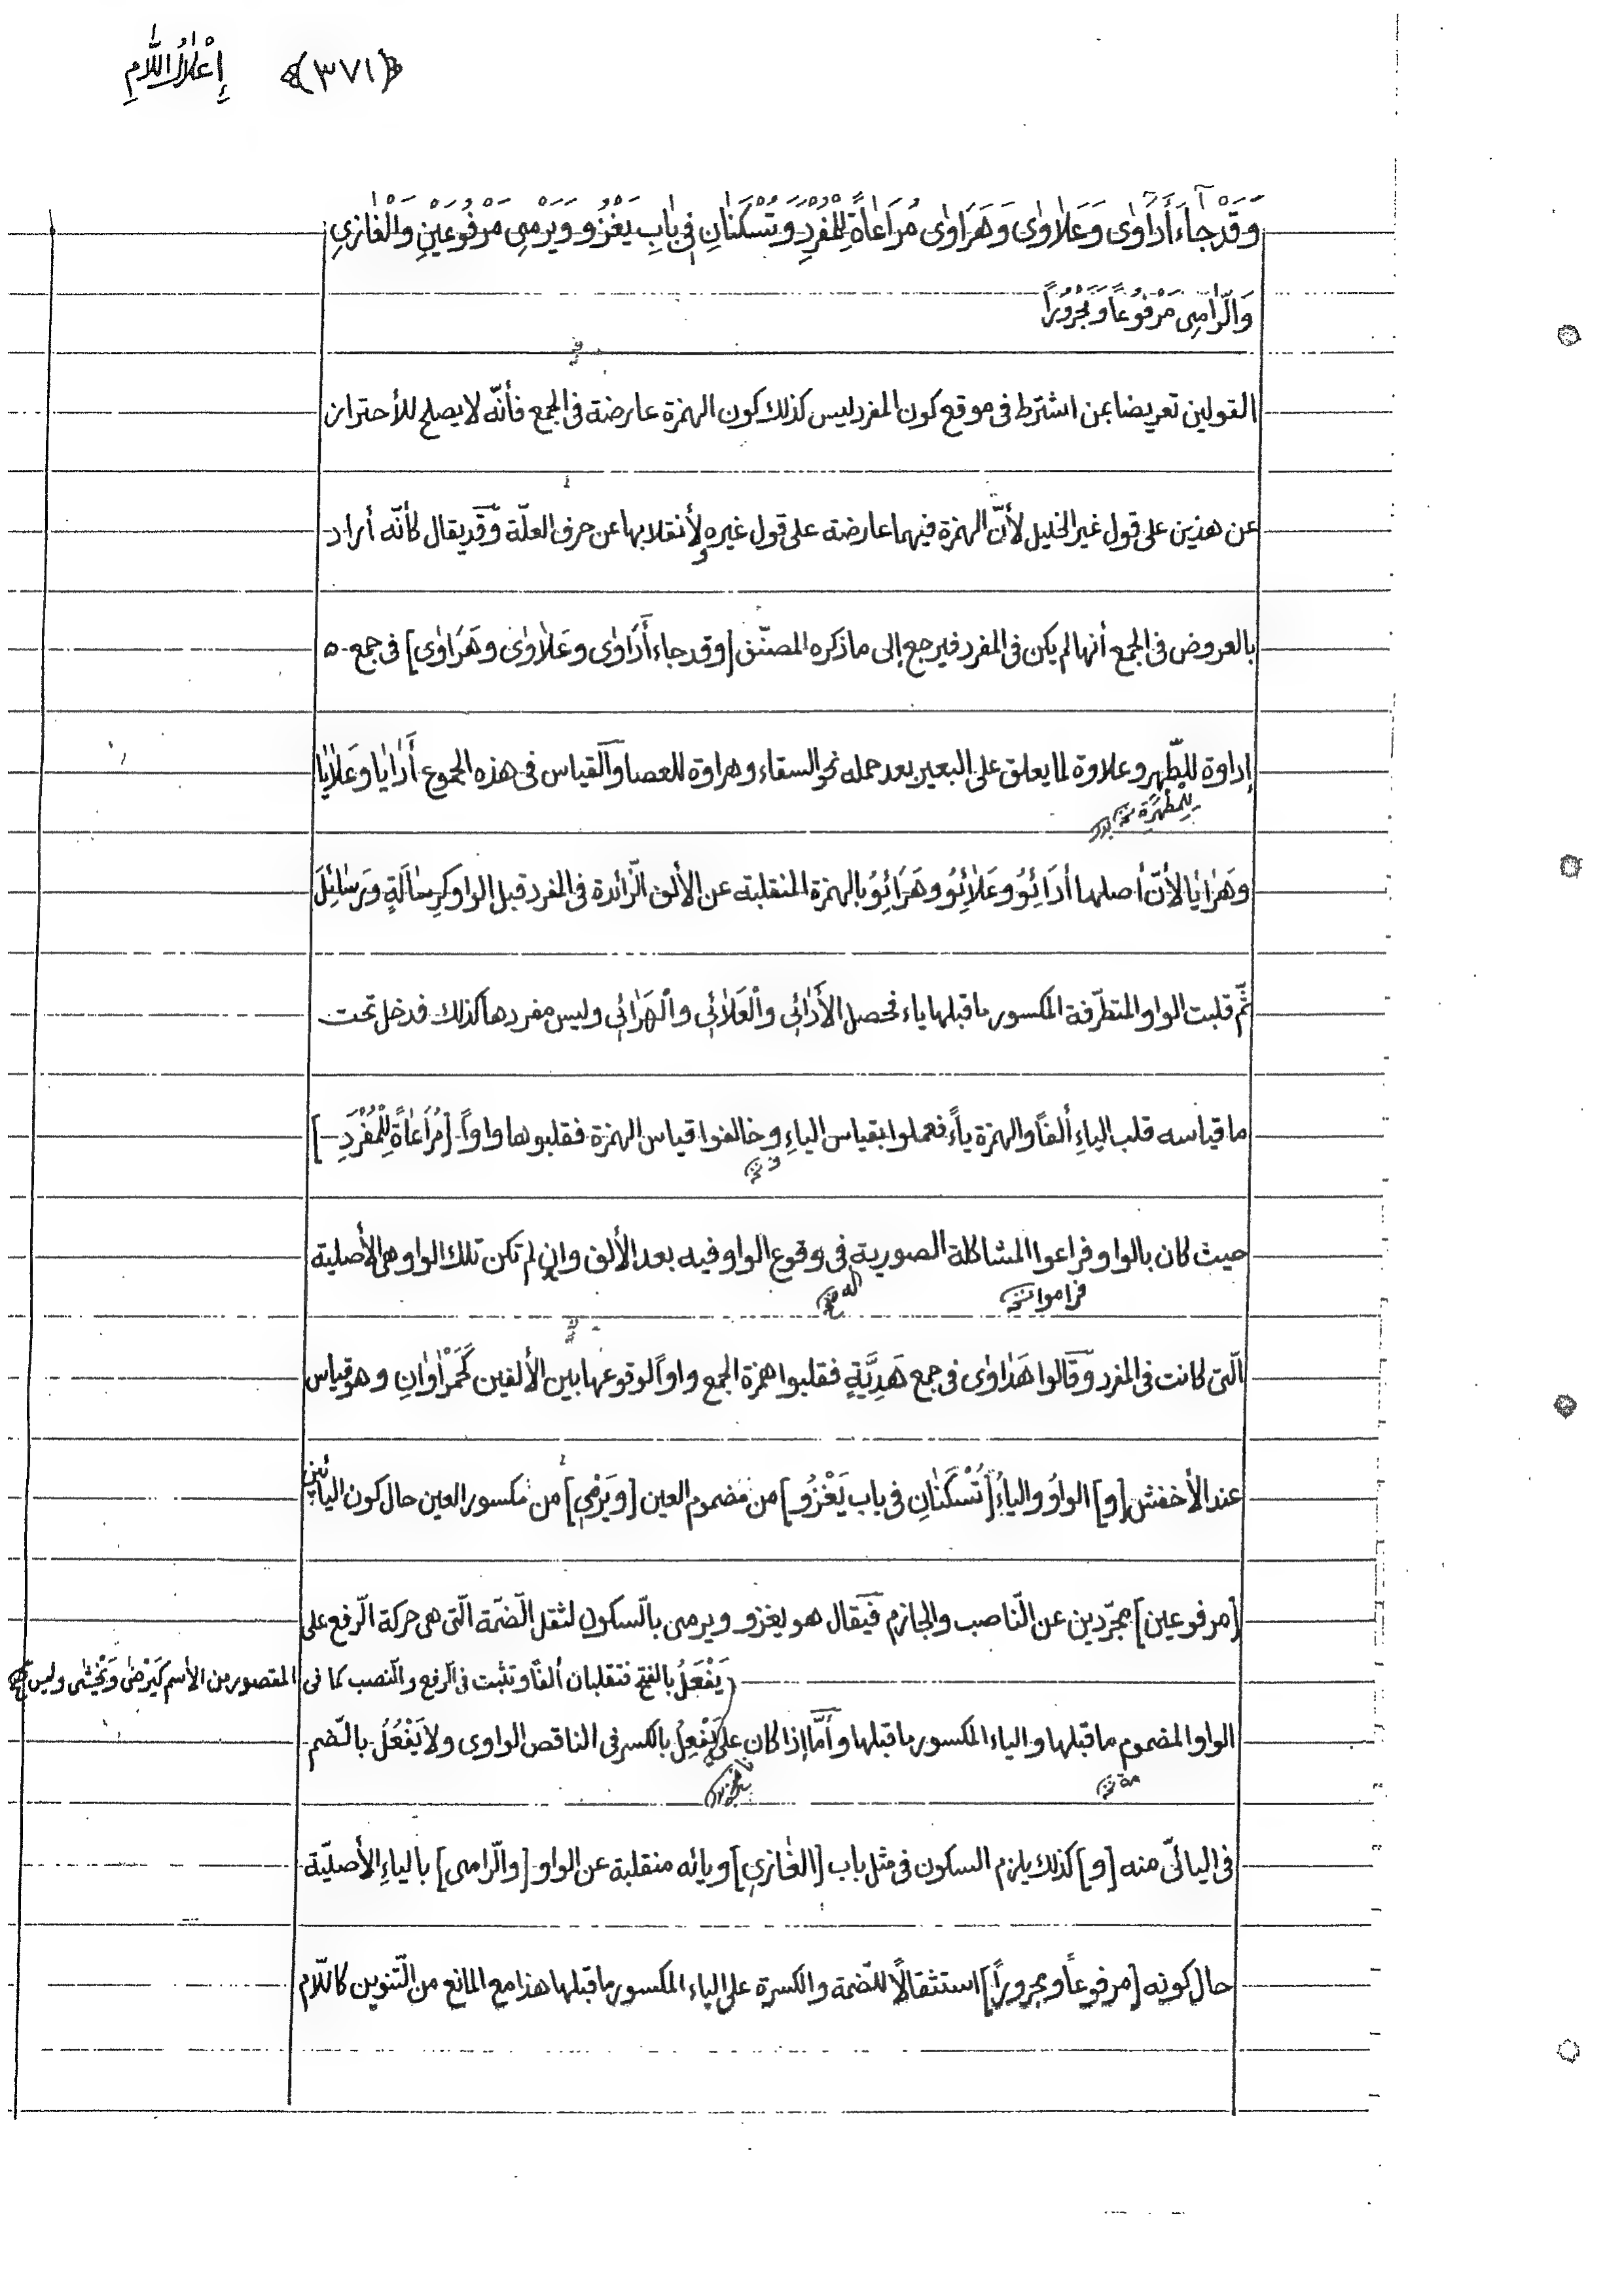 ﴿٣٧١﴾ إِعْلَالُ اللَّامِ
وَقَدْ جَاءَ أَدَاوٰى وَعَلَاوٰى وَهَرَاوٰى مُرَاعَاةً لِلْمُفْرَدِ وَتُسْكَنَانِ فِي بَابِ يَغْزُو وَيَرْمِى مَرْفُوعَيْنِ وَالْغَازِي
وَالرَّامِي مَرْفُوعاً وَمَجْرُوراً
القولين تعريضا بمن اشترط فى موقع كون المفرد ليس كذلك كون الهمزة عارضة فى الجمع فأنّه لا يصلح للأحتراز
عن هذين على قول غير الخليل لأنّ الهمزة فيهما عارضة على قول غيره لأنقلابها عن حرف العلّة وقد يقال كأنّه أراد
بالعروض فى الجمع أنها لم يكن فى المفرد فيرجع إلى ما ذكره المصنّف [وقد جاء أَدَاوٰى وعَلَاوٰى وهَرَاوٰى] فى جمع
إداوة للطّهر وعلاوة لما يعلق على البعير بعد حمله نحو السقاء وهراوة للعصا والقياس فى هذه الجموع أَدَايَا وعَلَايَا
لِلْمِطْهَرَةِ نخ
وهَرَايَا لأنّ أصلها أدَائِوُ وعَلَائِوُ وهَرَائِوُ بالهمزة المنقلبة عن الألف الزّائدة فى المفرد قبل الواو كرِسَالَةٍ ورَسَائِلَ
ثمّ قلبت الواو المتطرّفة المكسور ما قبلها ياء فحصل الأَدَائِي والْعَلَائِي والْهَرَائِي وليس مفردها كذلك فدخل تحت
ما قياسه قلب الياءِ ألفاً والهمزة ياءً فعملوا بقياس الياءِ وخالفوا قياس الهمزة فقلبوها واواً [مُرَاعَاةً لِلْمُفْرَدِ]
حيث كان بالواو فراعوا المشاكلة الصورية فى وقوع الواو فيه بعد الألف وإن لم تكن تلك الواو هى الأصلية
فراموا نخ
الّتى كانت فى المفرد وقالوا هَدَاوٰى فى جمع هَدِيَّةٍ فقلبوا همزة الجمع واواً لوقوعها بين الألفين كَحَمْرَاوَانِ وهو قياس
عند الأخفش [و] الواوُ والياءُ [تُسْكَنَانِ فى باب يَغْزُو] من مضموم العين [ويَرْمِي] من مكسور العين حال كون اليائين
[مرفوعين] مجرّدين عن النّاصب والجازم فيقال هو يغزو ويرمى بالسّكون لثقل الضّمة الّتى هى حركة الرّفع على
يَفْعَلُ بالفتح فتقلبان ألفاً وتثبت فى الرفع والنصب كما فى المقصور من الاسم كَيَرْضٰى ويَخْشٰى وليس
الواو المضموم ما قبلها والياء المكسور ما قبلها وأمّا إذا كان على يَفْعِلُ بالكسر فى الناقص الواوى ولا يَفْعُلُ بالضّم
مة نخ
فى اليائىّ منه [و] كذلك يلزم السكون فى مثل باب [الغَازِي] ويائه منقلبة عن الواو [والرّامى] بالياءِ الأصليّة
حال كونه [مرفوعاً ومجروراً] استثقالاً للضّمة والكسرة على الياء المكسور ما قبلها هذا مع المانع من التّنوين كاللّام